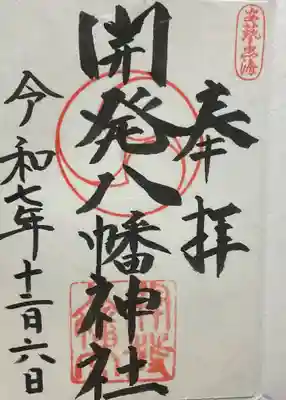 奉拝
開発八幡神社
令和七年十二月六日